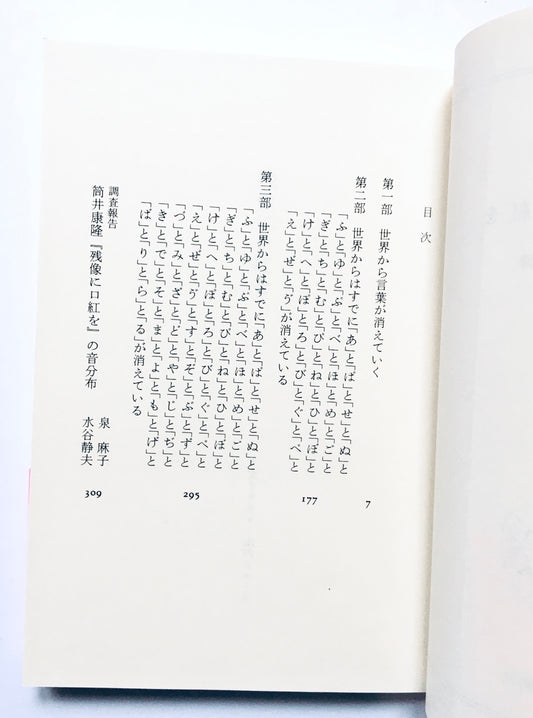 目次
第一部　世界から言葉が消えていく　7
第二部　世界からはすでに「あ」と「ぱ」と「せ」と「ぬ」と
「ふ」と「ゆ」と「ぷ」と「べ」と「ほ」と「め」と「ご」と
「ぎ」と「ち」と「む」と「び」と「ね」と「ひ」と「ぼ」と
「け」と「へ」と「ぽ」と「ろ」と「ぴ」と「ぐ」と「ぺ」と
「え」と「ぜ」と「ゔ」が消えている　177
第三部　世界からはすでに「あ」と「ぱ」と「せ」と「ぬ」と
「ふ」と「ゆ」と「ぷ」と「べ」と「ほ」と「め」と「ご」と
「ぎ」と「ち」と「む」と「び」と「ね」と「ひ」と「ぼ」と
「け」と「へ」と「ぽ」と「ろ」と「ぴ」と「ぐ」と「ぺ」と
「え」と「ぜ」と「ゔ」と「す」と「ぞ」と「ぶ」と「ず」と
「づ」と「み」と「ざ」と「ど」と「や」と「じ」と「ぢ」と
「き」と「で」と「そ」と「ま」と「よ」と「も」と「げ」と
「ば」と「り」と「ら」と「る」が消えている　295
調査報告
筒井康隆『残像に口紅を』の音分布
泉　麻子
水谷静夫
309